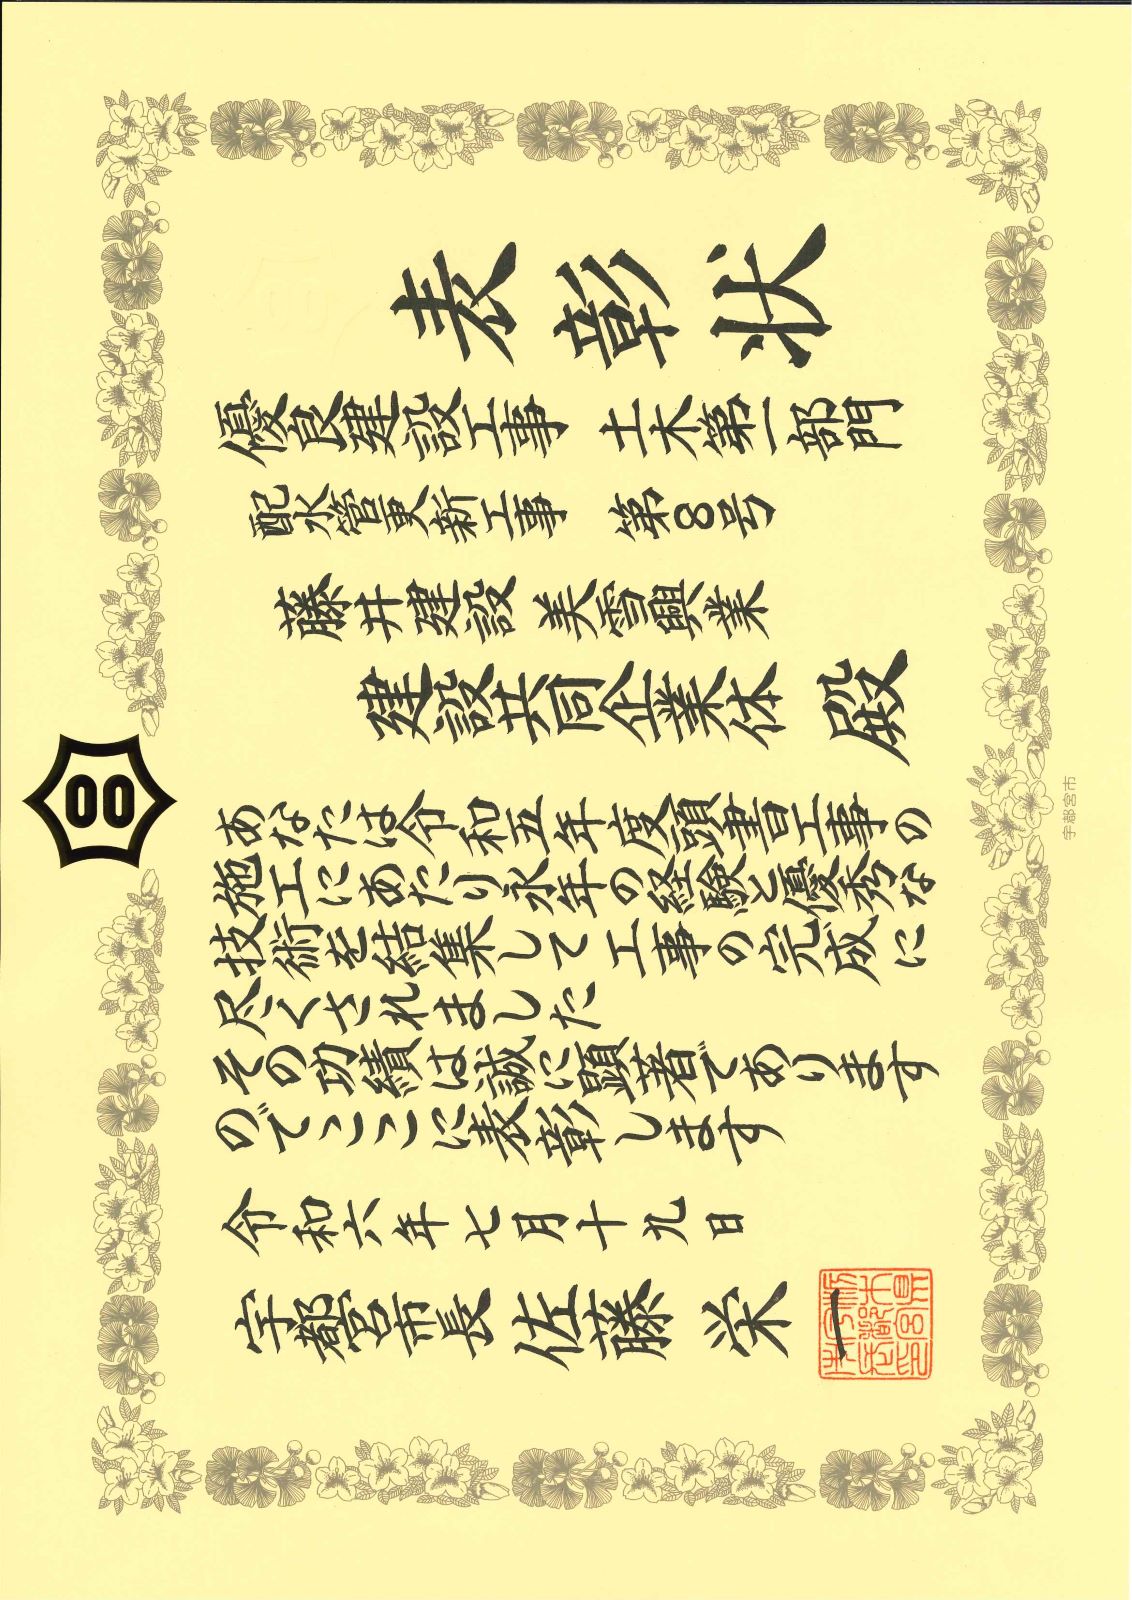 表彰状
優良建設工事　土木第一部門
配水管更新工事　第8号
藤井建設　美雪興業
建設共同企業体　殿
あなたは令和五年度頭書工事の
施工にあたり永年の経験と優秀な
技術を結集して工事の完成に
尽くされました
その功績は誠に顕著であります
のでここに表彰します
令和六年七月十九日
宇都宮市長　佐藤栄一
宇都宮市